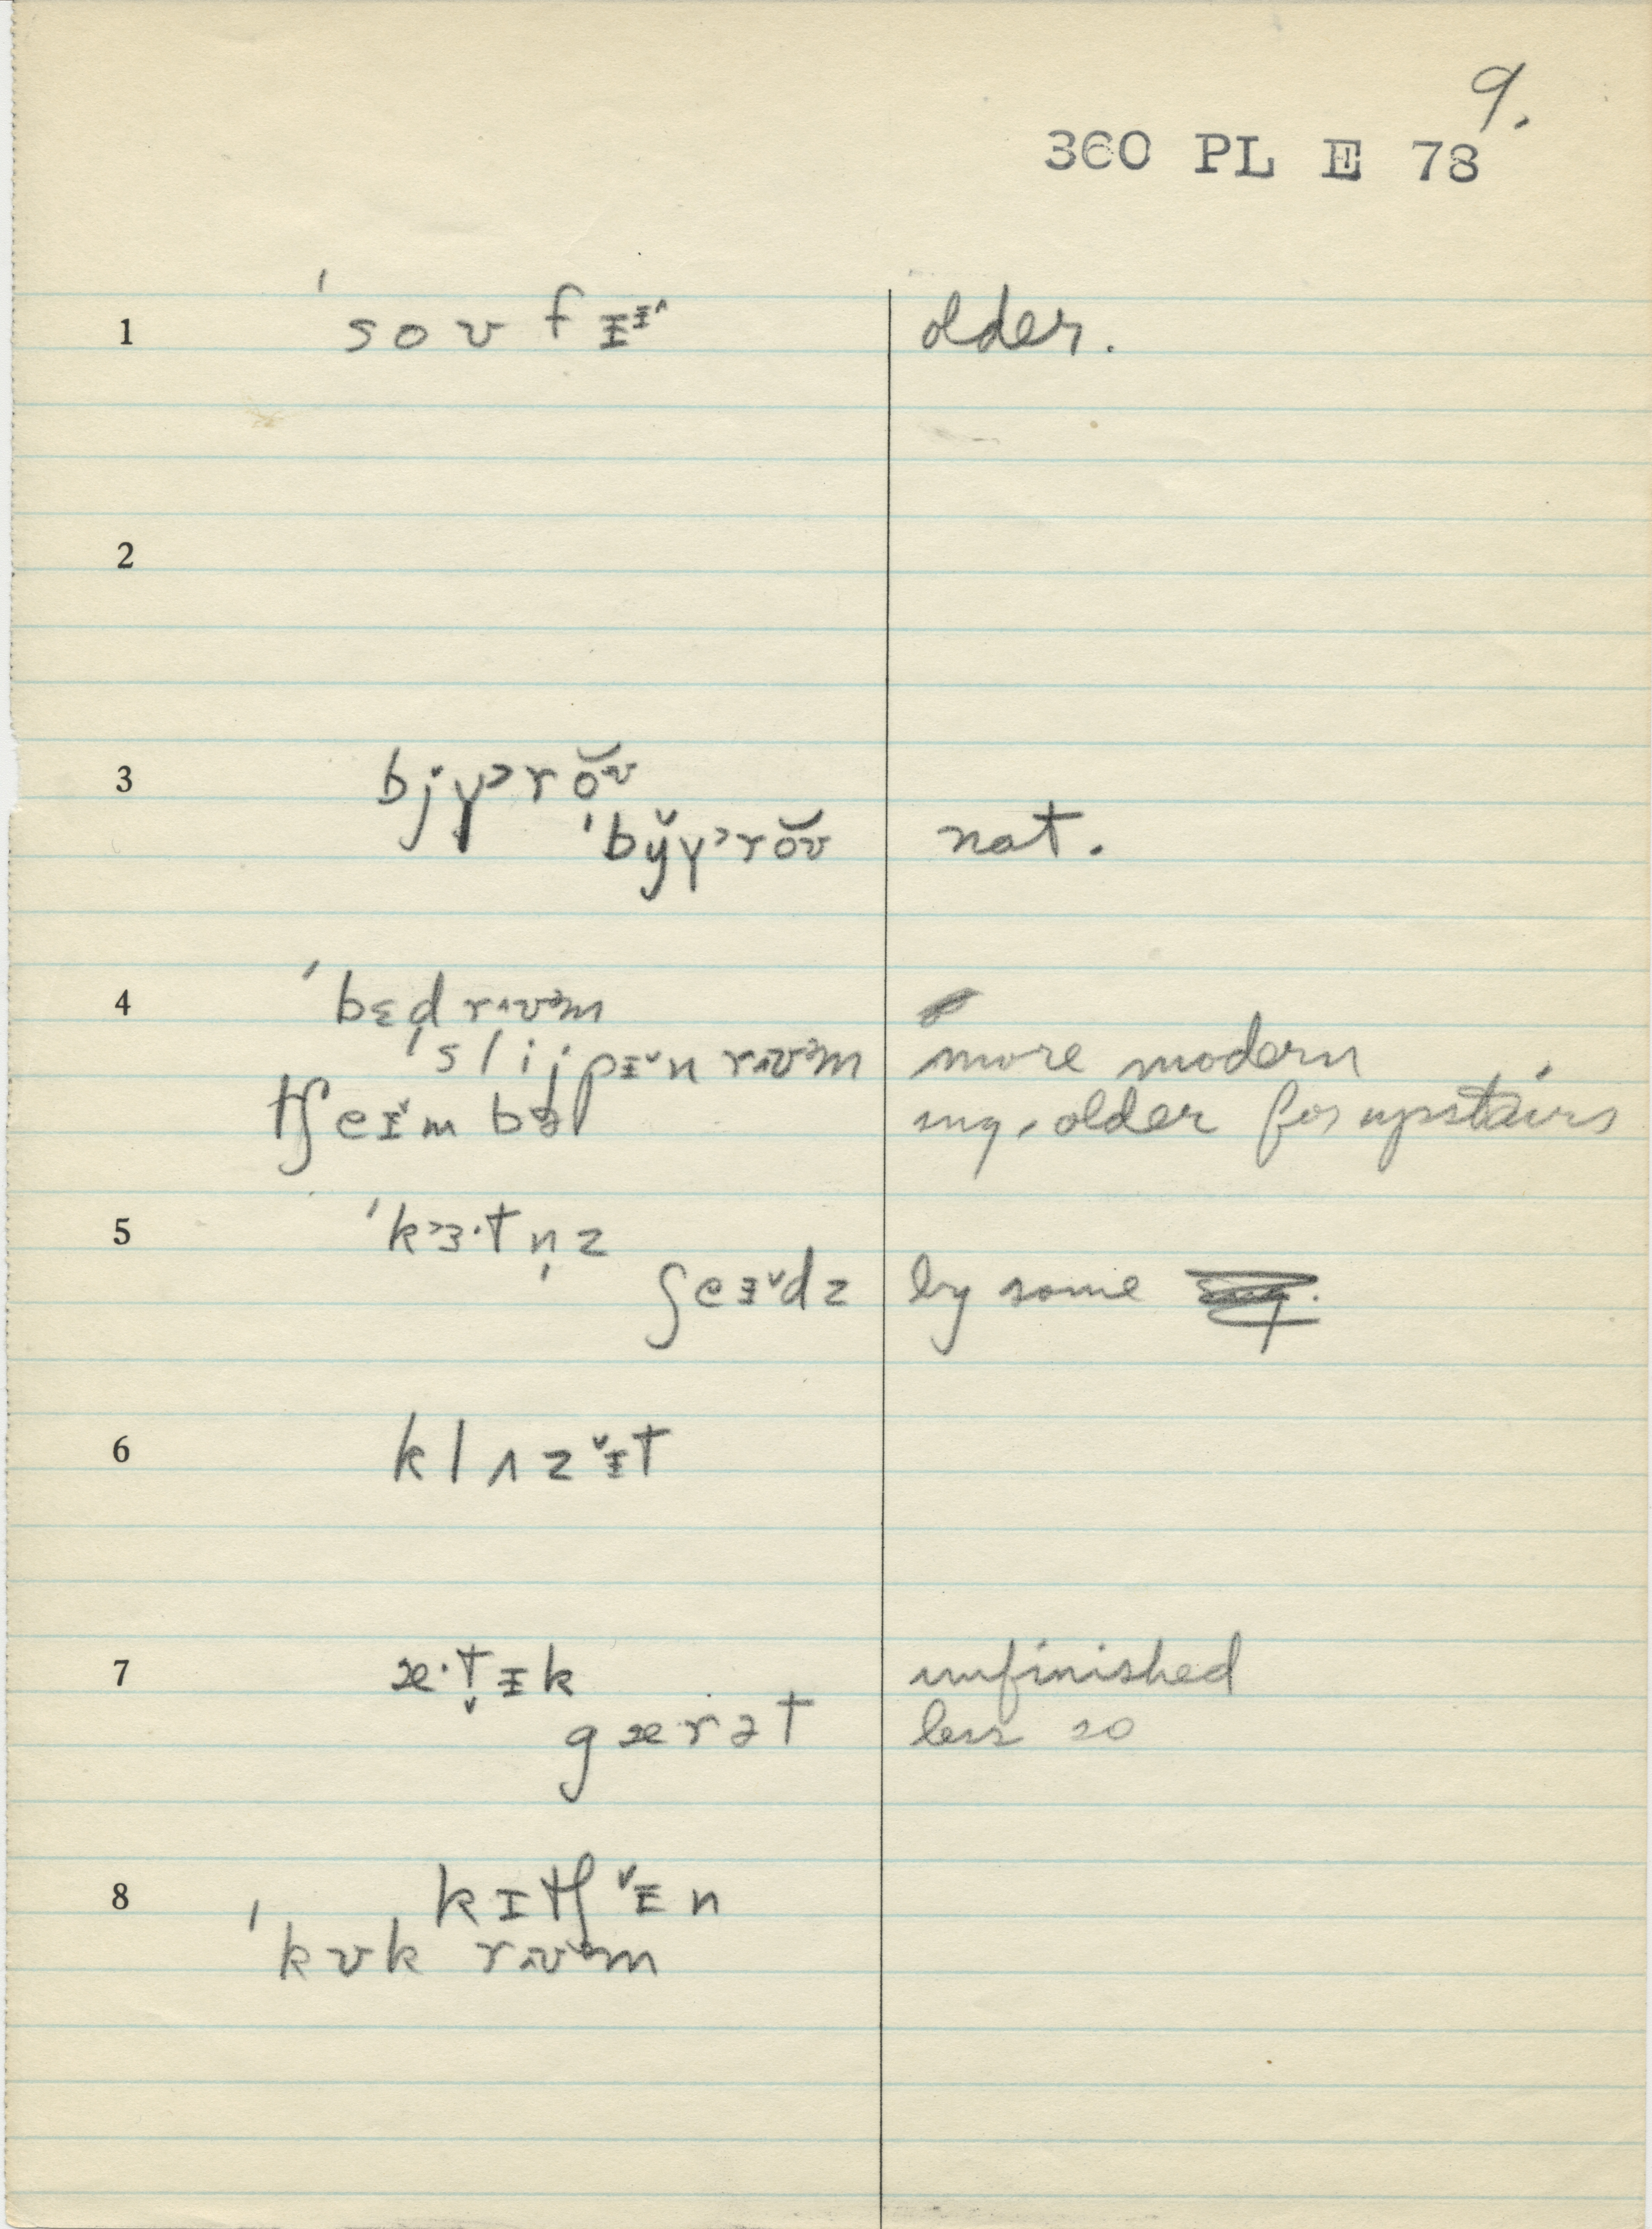 9.
360 PL E 78
1 ˈsoʊfɪ̵ɪ̵^ older.
2
3 bjʏ˃rŏʊ̆
ˈby̆ʏ˃rŏʊ̆ nat.
4 ˈbɛd rʌʊ˃m
ˈslijpɪ̵ˇn rʌʊ˃m more modern
tʃeɪ̵ˇmbɚ sug. older for upstairs
5 ˈkɜ˃·tn̩z
ʃeɪ̵ˇdz by some
6 klʌzˇɪ̵t
7 æ·t̬ɪ̵k unfinished
gærət less so
8 kɪtʃˇɪ̵n
ˈkʊk rʌʊ˃m